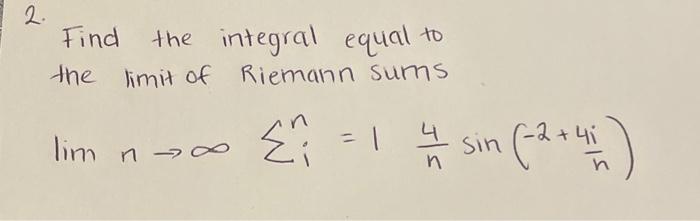 2.
Find the integral equal to
the limit of Riemann sums
lim n → ∞ Σ_i^n = 1 4/n sin (-2 + 4i/n)